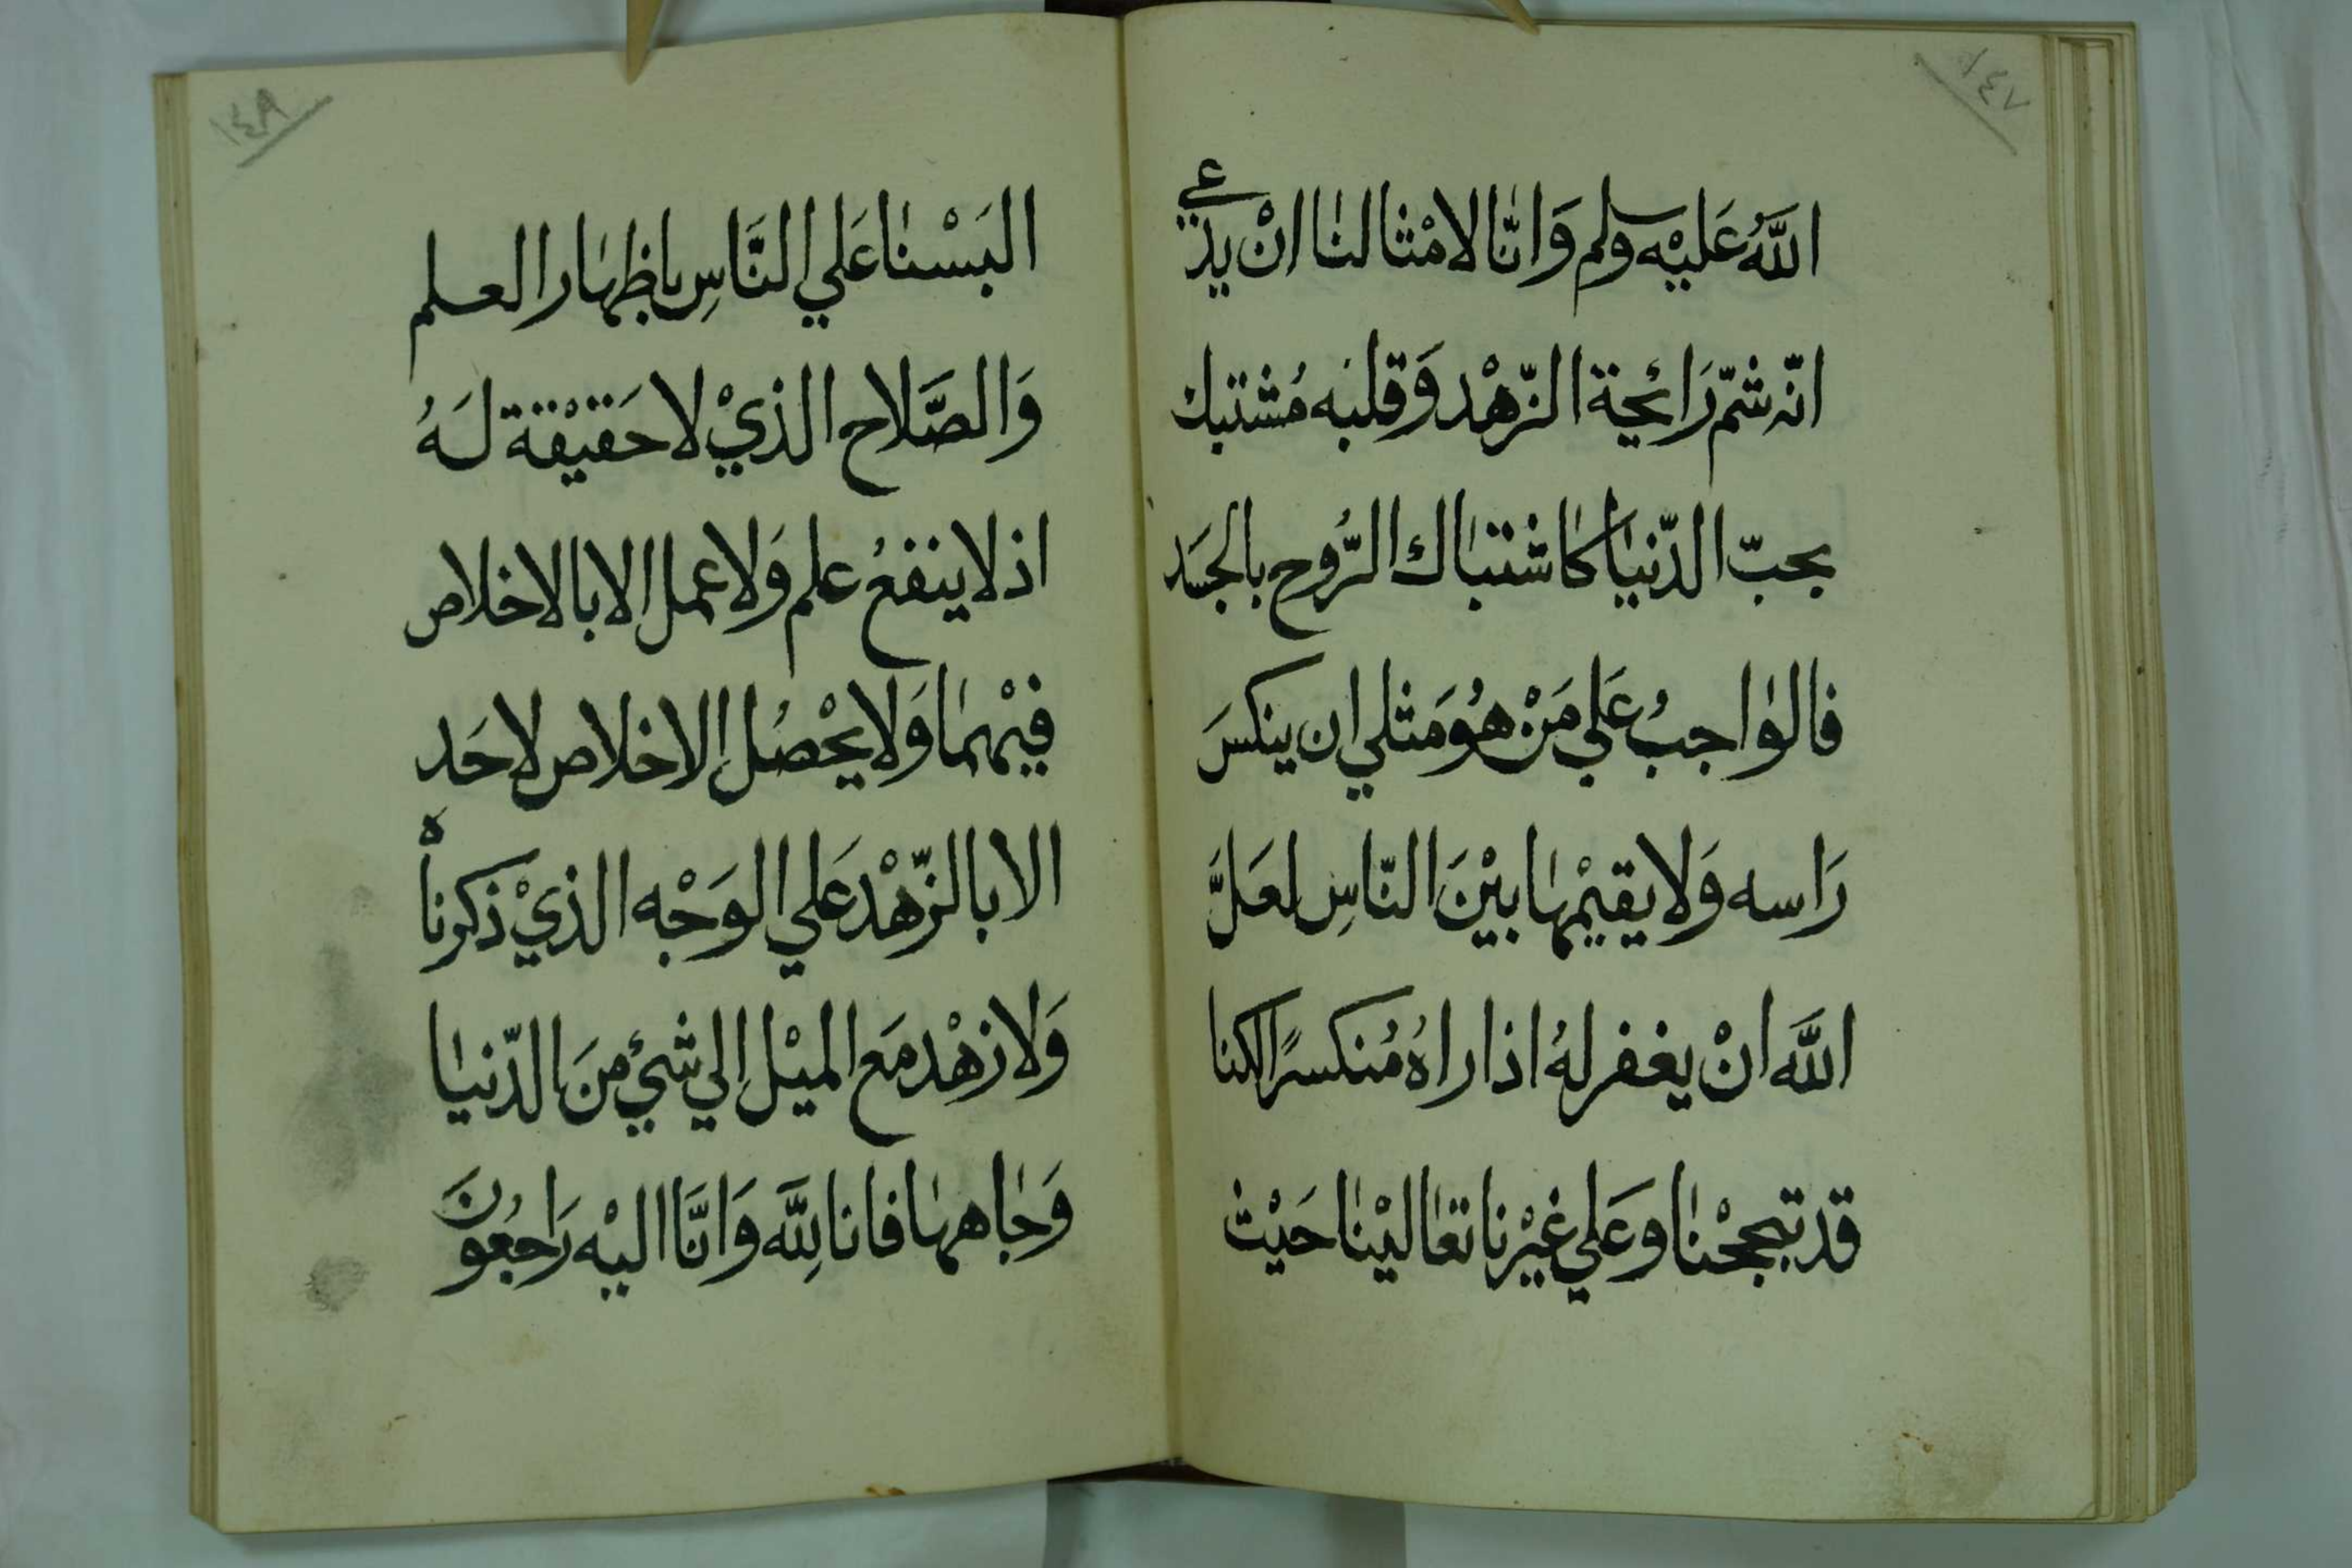 ١٤٧
اللَّهُ عَليْه وسلم وَانَّا لامْثالنا انْ يدّعي
انّه شمّ رَائحة الزّهْد وَقلبَه مُشتبك
بحبّ الدّنيَا كاشتباك الرُّوح بالجسَد
فالواجبُ عَلي مَنْ هُوَ مَثلي ان ينكسَ
رَاسه وَلا يقيْمهَا بيْنَ النّاسِ لعَلَّ
اللَّه انْ يغفر لهُ اذا راهُ مُنكسرًا لكنا
قد تبجحْنا وَعَلي غيْرنا تعَاليْنا حَيْث
١٤٨
البَسْنا عَلي النَّاسِ باظهَار العلم
وَالصَّلاح الذيْ لا حَقيْقة لَهُ
اذ لا ينفعُ علم وَلا عمل الا بالاخلاص
فيْهمَا وَلا يحْصُل الاخلاص لاحَد
الا بالزّهْد عَلي الوَجْه الذيْ ذكرناهْ
وَلا زهْد مَع الميْل الي شئ منَ الدّنيَا
وَجَاههَا فانا لِلَّه وَانَّا اليْه رَاجعُونَ